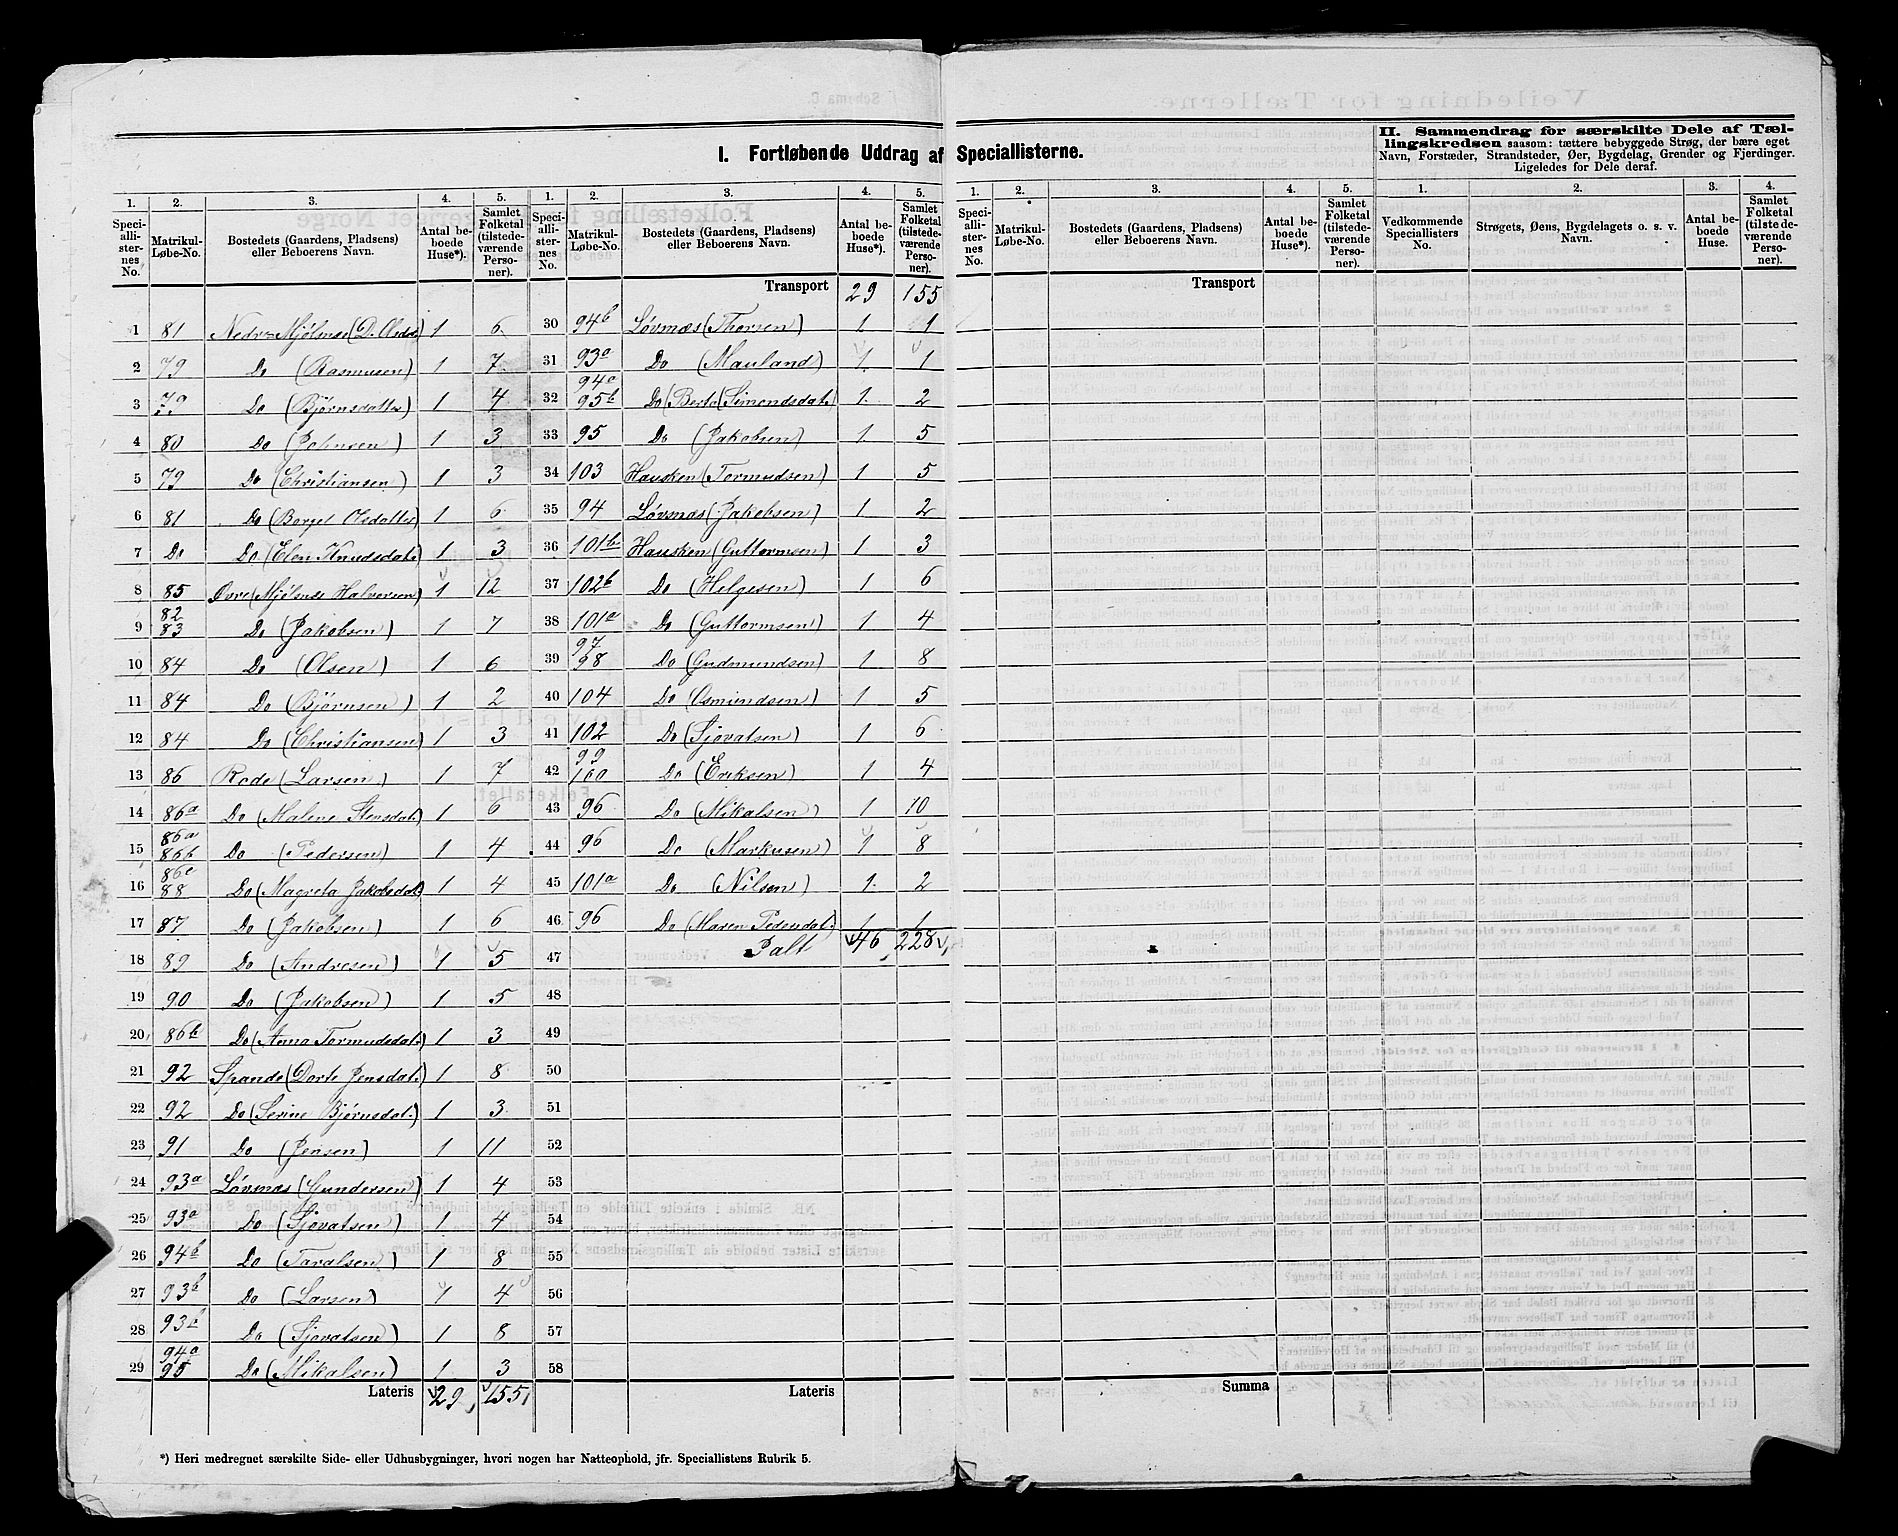 I. Fortløbende Uddrag af Speciallisterne.
II. Sammendrag for særskilte Dele af Tæl-
lingskredsen saasom: tættere bebyggede Strøg, der bære eget
Navn, Forstæder, Strandsteder, Øer, Bygdelag, Grender og Fjerdinger.
Ligeledes for Dele deraf.
1. 2. 3. 4. 5. 1. 2. 3. 4. 5. 1. 2. 3. 4. 5. 1. 2. 3. 4.
Speciallisternes No. Matrikul-Løbe-No. Bostedets (Gaardens, Pladsens) eller Beboerens Navn. Antal beboede Huse*). Samlet Folketal (tilstedeværende Personer).
Speciallisternes No. Matrikul-Løbe-No. Bostedets (Gaardens, Pladsens) eller Beboerens Navn. Antal beboede Huse*). Samlet Folketal (tilstedeværende Personer).
Speciallisternes No. Matrikul-Løbe-No. Bostedets (Gaardens, Pladsens) eller Beboerens Navn. Antal beboede Huse*). Samlet Folketal (tilstedeværende Personer).
Vedkommende Speciallisters No. Strøgets, Øens, Bygdelagets o. s. v. Navn. Antal beboede Huse. Samlet Folketal (tilstedeværende Personer).
1 81 Nedre Mjølsnæs (D. Olsdat.) 1 6
2 79 Do (Rasmusen) 1 7
3 79 Do (Bjørnsdatter) 1 4
4 80 Do (Johnsen) 1 3
5 79 Do (Christiansen) 1 3
6 81 Do (Borgel Olsdatter) 1 6
7 Do Do (Elen Knudsdat.) 1 3
8 85 Øvre (Mjølsnæs Halversen) 1 12
9 82 83 Do (Jakobsen) 1 7
10 84 Do (Olsen) 1 6
11 84 Do (Bjørnsen) 1 2
12 84 Do (Christiansen) 1 3
13 86 Rode (Larsen) 1 7
14 86a Do (Malene Stensdat.) 1 6
15 86a 86b Do (Pedersen) 1 4
16 86c 88 Do (Magreta Jakobsdat.) 1 4
17 87 Do (Jakobsen) 1 6
18 89 Do (Andresen) 1 5
19 90 Do (Jakobsen) 1 5
20 86b Do (Anna Tormudsdat.) 1 3
21 92 Spande (Dorte Jensdat.) 1 8
22 92 Do (Serine Bjørnsdat.) 1 3
23 91 Do (Jensen) 1 11
24 93a Løvsnæs (Gundersen) 1 4
25 93a Do (Sjovatsen) 1 4
26 94b Do (Taralsen) 1 8
27 93b Do (Larsen) 1 4
28 93b Do (Sjovatsen) 1 8
29 94a 95 Do (Mikalsen) 1 3
Lateris 29 155
Transport 29 155
30 94b Løvsnæs (Thorsen) 1 1
31 93a Do (Mauland) 1 1
32 94a 95b Do (Berta (Simendsdat.) 1 2
33 95 Do (Jakobsen) 1 5
34 103 Hausken (Tormudsen) 1 5
35 94 Løvsnæs (Jakobsen) 1 2
36 101b Hausken (Guttormsen) 1 3
37 102b Do (Helgesen) 1 6
38 101a Do (Guttormsen) 1 4
39 97 98 Do (Gudmundsen) 1 8
40 104 Do (Osmundsen) 1 5
41 102 Do (Sjovatsen) 1 6
42 99 100 Do (Eriksen) 1 4
43 96 Do (Mikalsen) 1 10
44 96 Do (Markusen) 1 8
45 101a Do (Nilsen) 1 2
46 96 Do (Maren Pedersdat.) 1 1
47 Ialt 46 228
48
49
50
51
52
53
54
55
56
57
58
Lateris
Transport
Summa
*) Heri medregnet særskilte Side- eller Udhusbygninger, hvori nogen har Natteophold, jfr. Speciallistens Rubrik 5.